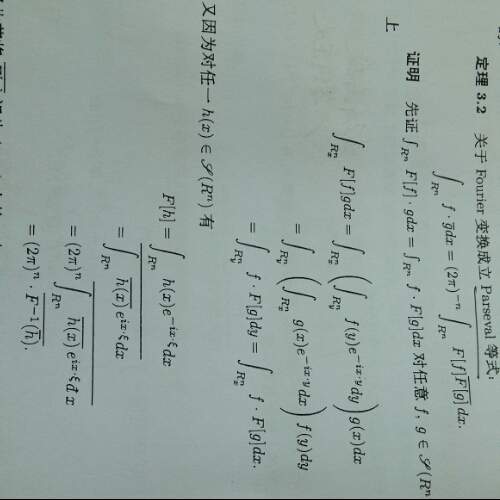 定理 3.2 关于 Fourier 变换成立 Parseval 等式:
∫_{R^n} f · \overline{g}dx = (2π)^{-n} ∫_{R^n} F[f]\overline{F[g]}dx.
证明 先证 ∫_{R^n} F[f] · gdx = ∫_{R^n} f · F[g]dx 对任意 f, g ∈ 𝒮(R^n
上
∫_{R^n_x} F[f]gdx = ∫_{R^n_x} (∫_{R^n_y} f(y)e^{-ix·y}dy) g(x)dx
= ∫_{R^n_y} (∫_{R^n_x} g(x)e^{-ix·y}dx) f(y)dy
= ∫_{R^n_y} f · F[g]dy = ∫_{R^n_x} f · F[g]dx.
又因为对任一 h(x) ∈ 𝒮(R^n) 有
F[h] = ∫_{R^n} h(x)e^{-ix·ξ}dx
= \overline{∫_{R^n} \overline{h(x)}e^{ix·ξ}dx}
= (2π)^n \overline{∫_{R^n} \overline{h(x)}e^{ix·ξ}đx}
= (2π)^n · \overline{F^{-1}(\overline{h})}.